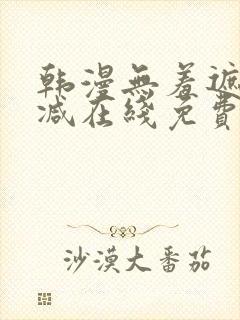 韩漫無羞遮
减在綫免費
沙漠大番茄